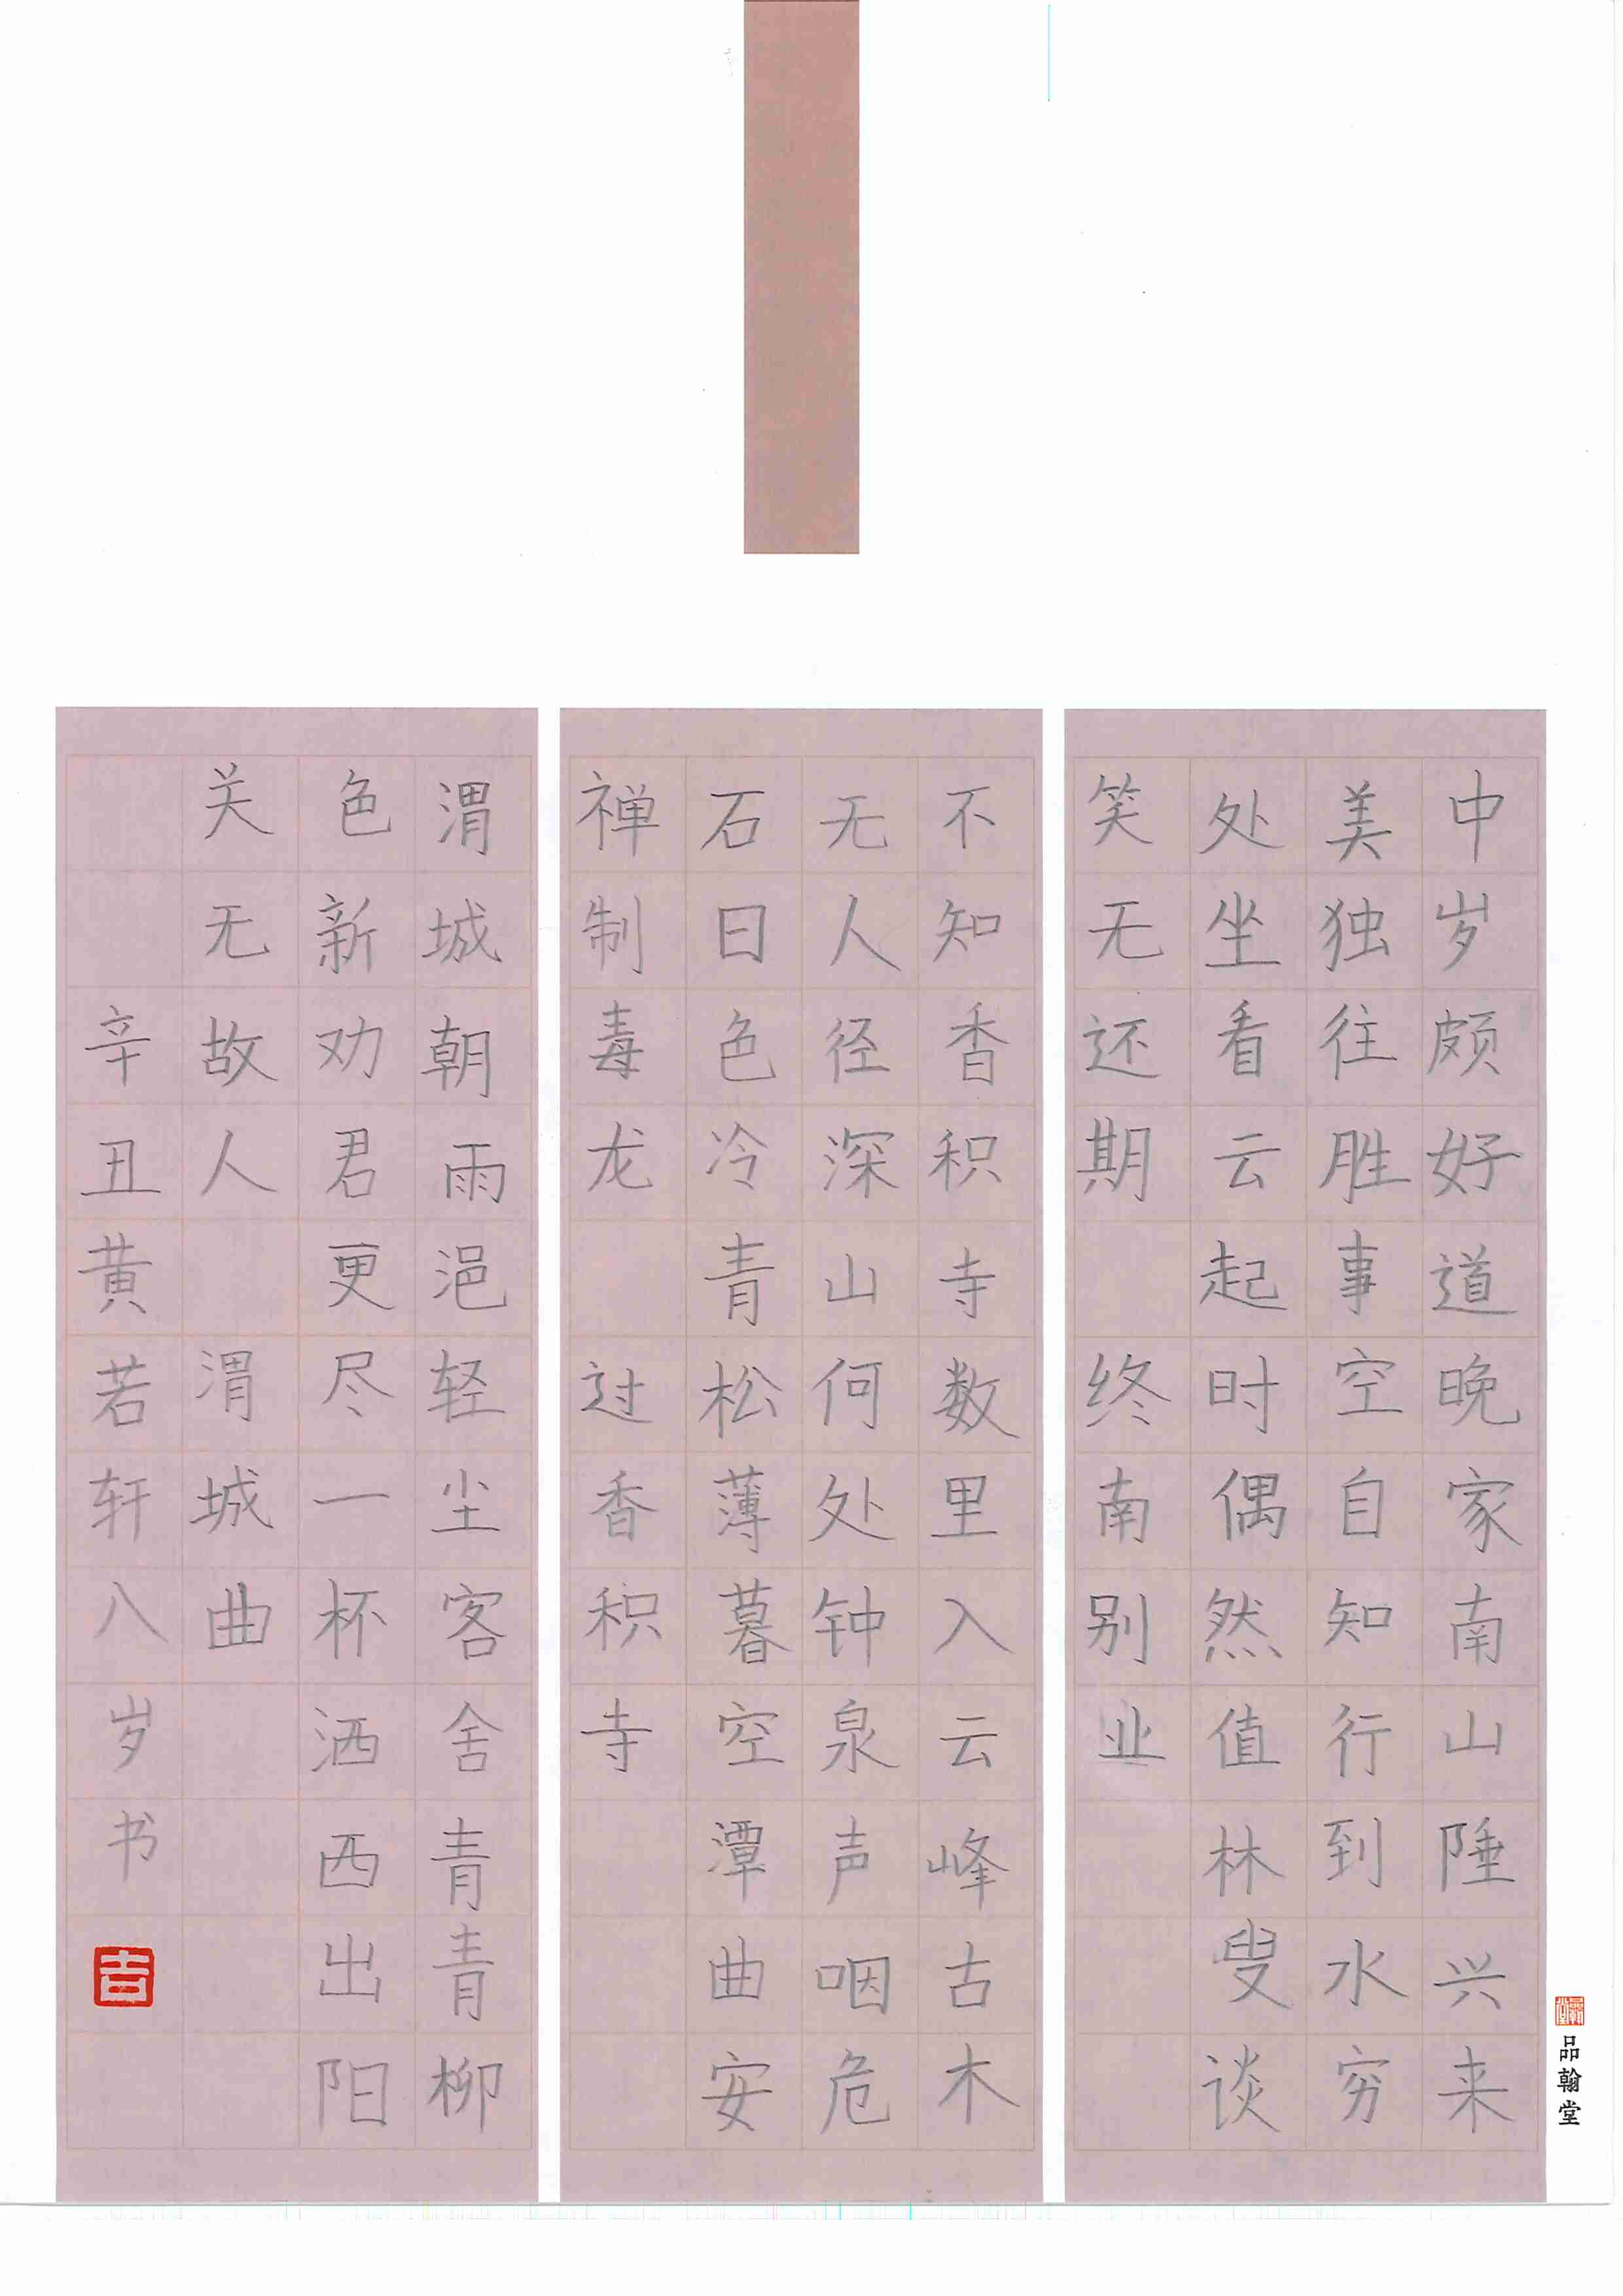 中岁颇好道晚家南山陲兴来
美独往胜事空自知行到水穷
处坐看云起时偶然值林叟谈
笑无还期 终南别业
不知香积寺数里入云峰古木
无人径深山何处钟泉声咽危
石日色冷青松薄暮空潭曲安
禅制毒龙 过香积寺
渭城朝雨浥轻尘客舍青青柳
色新劝君更尽一杯酒西出阳
关无故人 渭城曲
辛丑黄若轩八岁书
吉
品翰堂